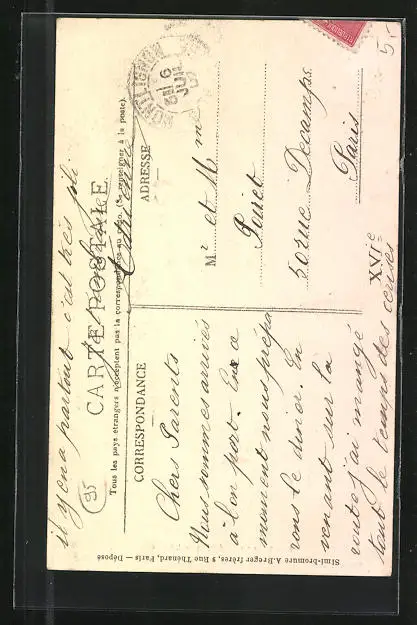 CARTE POSTALE
Tous les pays étrangers n'acceptent pas la correspondance au recto. (Se renseigner à la poste).
CORRESPONDANCE
ADRESSE
Chers Parents
Nous sommes arrivés
à bon port. En ce
moment nous prépa
rons le dîner. En
venant sur la
route j'ai mangé
tout le temps des cerises
il y en a partout c'est très joli
Mr et Mme
Poiret
50 rue Decamps
Paris
XVIe
MONTLIGNON
6
JUIL
Simi-bromure A. Breger frères, 9 Rue Thénard, Paris — Déposé
95
5.-